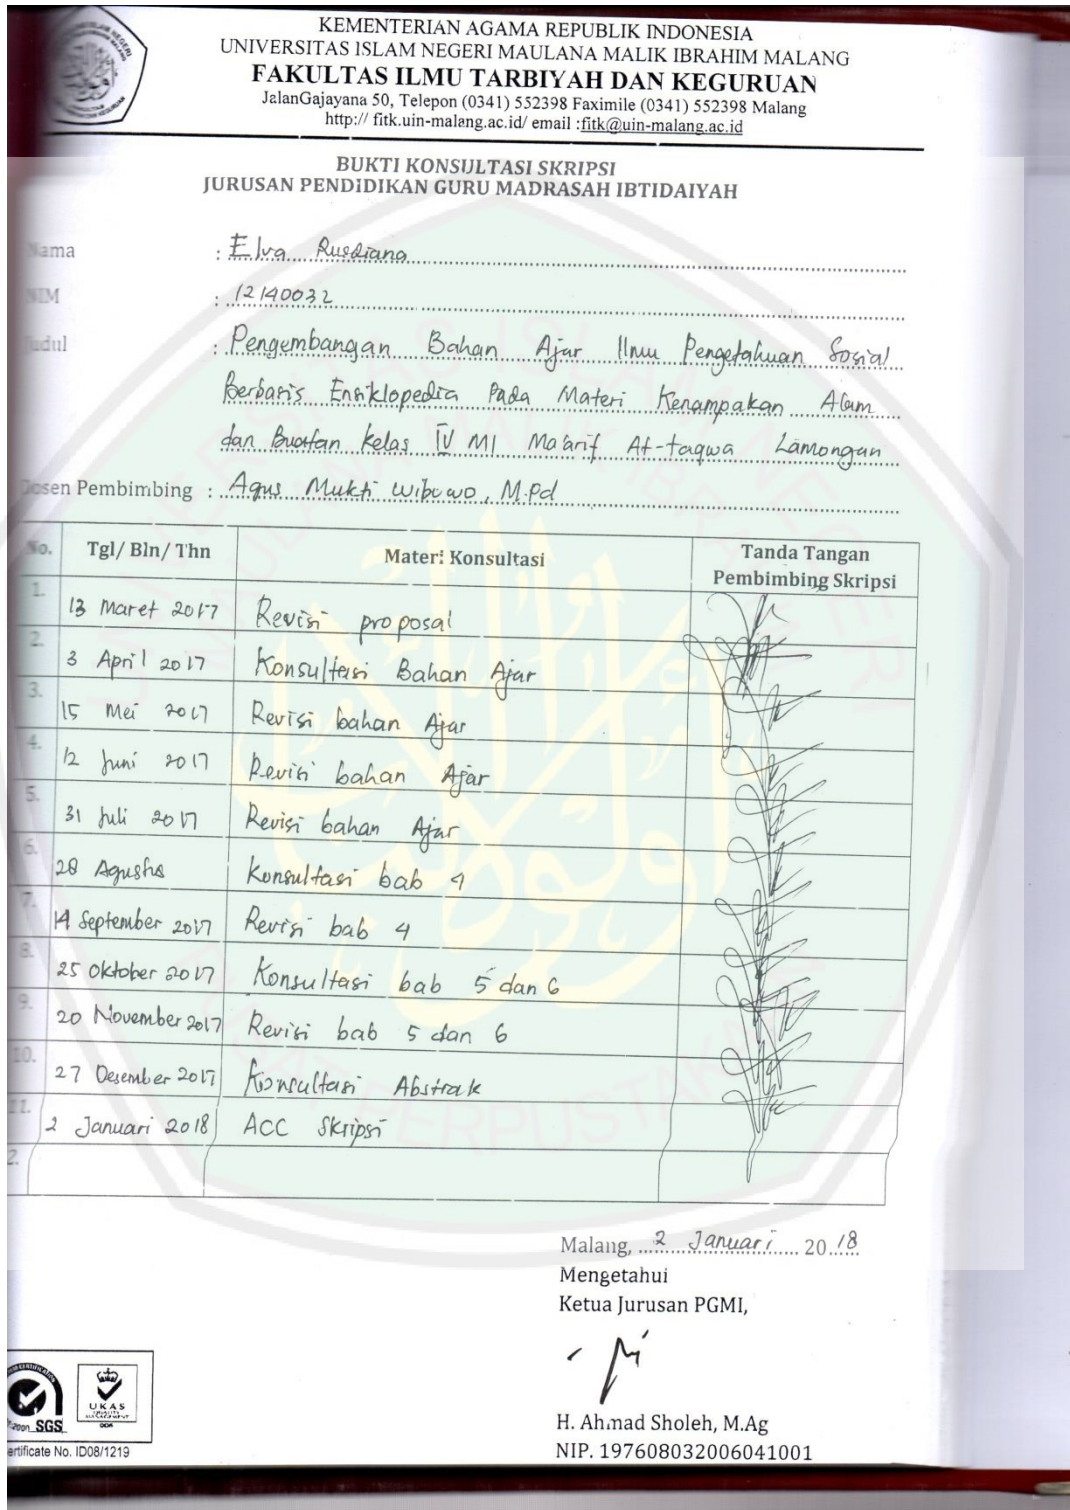 KEMENTERIAN AGAMA REPUBLIK INDONESIA
UNIVERSITAS ISLAM NEGERI MAULANA MALIK IBRAHIM MALANG
FAKULTAS ILMU TARBIYAH DAN KEGURUAN
JalanGajayana 50, Telepon (0341) 552398 Faximile (0341) 552398 Malang
http:// fitk.uin-malang.ac.id/ email :fitk@uin-malang.ac.id
BUKTI KONSULTASI SKRIPSI
JURUSAN PENDIDIKAN GURU MADRASAH IBTIDAIYAH
Nama : Elva Rusdiana
NIM : 12140032
Judul : Pengembangan Bahan Ajar Ilmu Pengetahuan Sosial
Berbasis Ensiklopedia Pada Materi Kenampakan Alam
dan Buatan Kelas IV MI Ma'arif At-taqwa Lamongan
Dosen Pembimbing : Agus Mukti Wibowo, M.Pd
No. Tgl/ Bln/ Thn Materi Konsultasi Tanda Tangan
Pembimbing Skripsi
1. 13 Maret 2017 Revisi proposal
2. 3 April 2017 Konsultasi Bahan Ajar
3. 15 Mei 2017 Revisi bahan Ajar
4. 12 Juni 2017 Revisi bahan Ajar
5. 31 Juli 2017 Revisi bahan Ajar
6. 28 Agustus Konsultasi bab 4
7. 14 September 2017 Revisi bab 4
8. 25 Oktober 2017 Konsultasi bab 5 dan 6
9. 20 November 2017 Revisi bab 5 dan 6
10. 27 Desember 2017 Konsultasi Abstrak
11. 2 Januari 2018 ACC Skripsi
2.
Malang, 2 Januari 2018
Mengetahui
Ketua Jurusan PGMI,
H. Ahmad Sholeh, M.Ag
NIP. 197608032006041001
SGS
UKAS
QUALITY
MANAGEMENT
ertificate No. ID08/1219